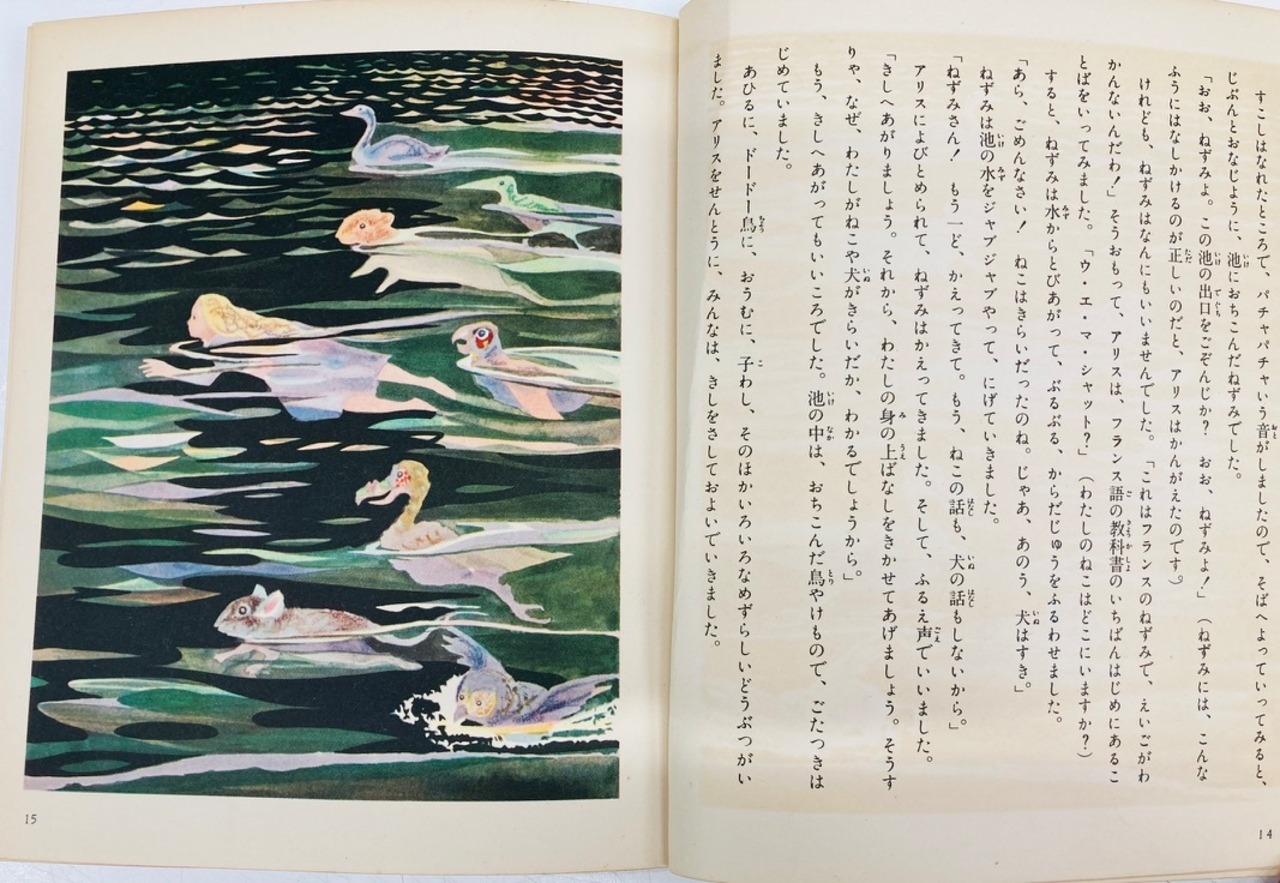 すこしはなれたところで、パチャパチャいう音がしましたので、そばへよっていってみると、
じぶんとおなじように、池におちこんだねずみでした。
「おお、ねずみよ。この池の出口をごぞんじか？　おお、ねずみよ！」（ねずみには、こんな
ふうにはなしかけるのが正しいのだと、アリスはかんがえたのです。）
けれども、ねずみはなんにもいいませんでした。「これはフランスのねずみで、えいごがわ
かんないんだわ！」そうおもって、アリスは、フランス語の教科書のいちばんはじめにあるこ
とばをいってみました。「ウ・エ・マ・シャット？」（わたしのねこはどこにいますか？）
すると、ねずみは水からとびあがって、ぶるぶる、からだじゅうをふるわせました。
「あら、ごめんなさい！　ねこはきらいだったのね。じゃあ、あのう、犬はすき。」
ねずみは池の水をジャブジャブやって、にげていきました。
「ねずみさん！　もう一ど、かえってきて。もう、ねこの話も、犬の話もしないから。」
アリスによびとめられて、ねずみはかえってきました。そして、ふるえ声でいいました。
「きしへあがりましょう。それから、わたしの身の上ばなしをきかせてあげましょう。そうす
りゃ、なぜ、わたしがねこや犬がきらいだか、わかるでしょうから。」
もう、きしへあがってもいいころでした。池の中は、おちこんだ鳥やけもので、ごたつきは
じめていました。
あひるに、ドードー鳥に、おうむに、子わし、そのほかいろいろなめずらしいどうぶつがい
ました。アリスをせんとうに、みんなは、きしをさしておよいでいきました。
14
15